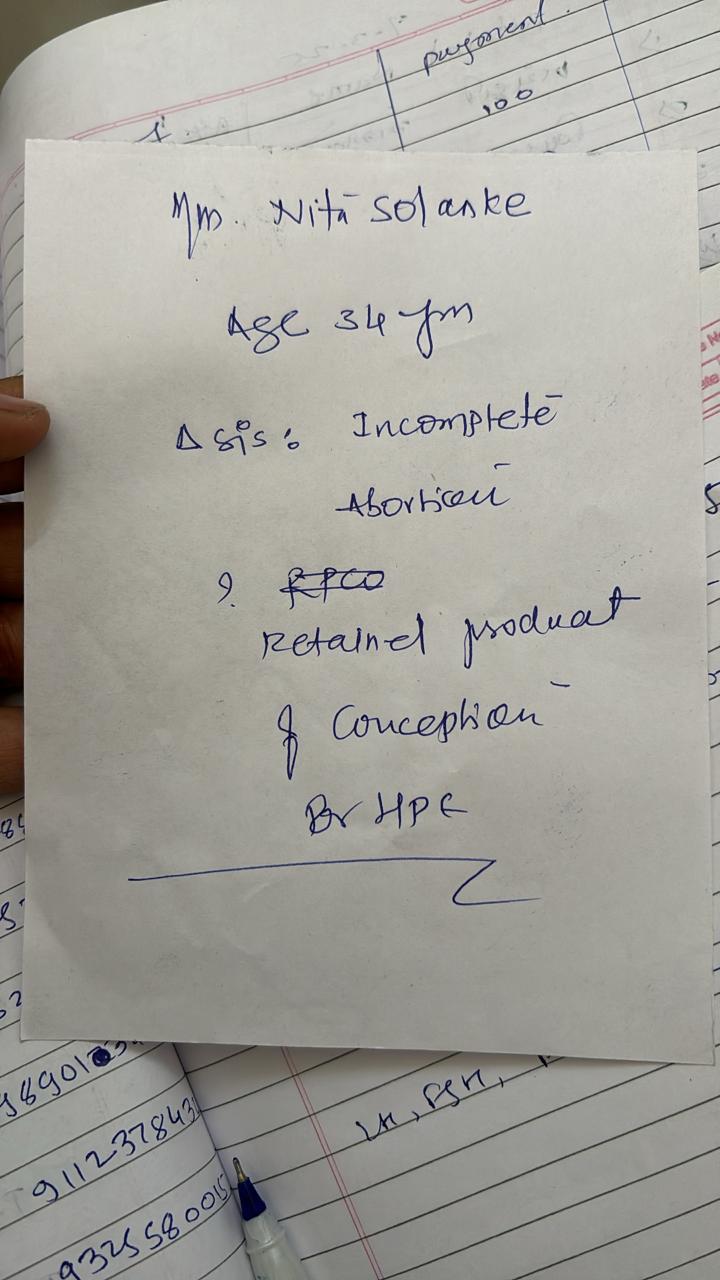 payment.
100
Mrs. Nita Solanke
Age 34 yrs
Δsis: Incomplete
Abortion
? RPCO
Retained product
of Conception
for HPE
LH, FSH,
911237843
9325580015